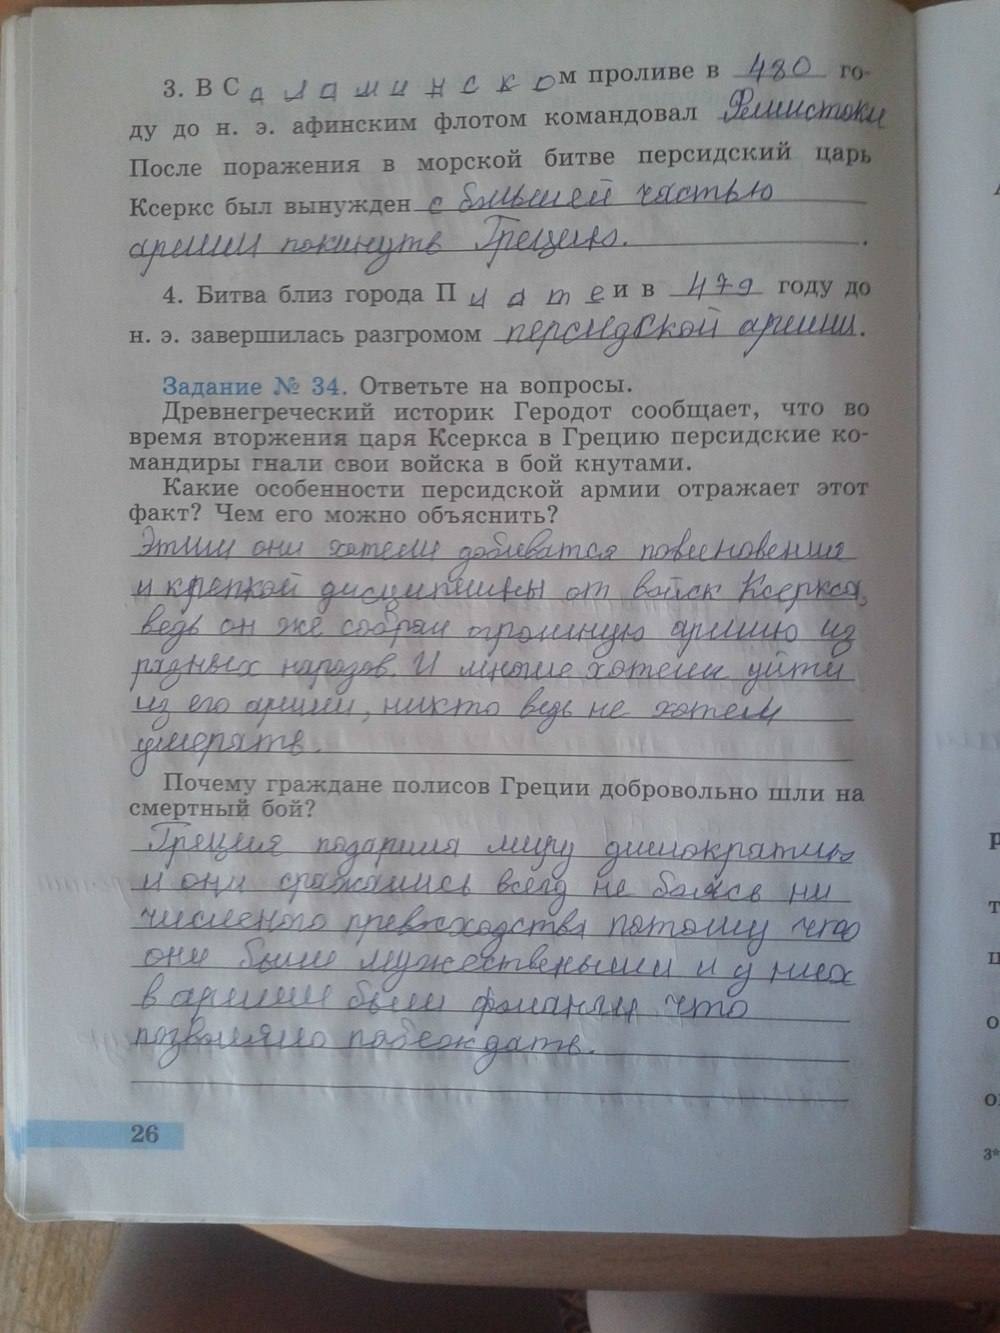 3. В Саламинском проливе в 480 го-
ду до н. э. афинским флотом командовал Фемистокл
После поражения в морской битве персидский царь
Ксеркс был вынужден с большей частью
армии покинуть Грецию.
4. Битва близ города Платеи в 479 году до
н. э. завершилась разгромом персидской армии.
Задание № 34. Ответьте на вопросы.
Древнегреческий историк Геродот сообщает, что во
время вторжения царя Ксеркса в Грецию персидские ко-
мандиры гнали свои войска в бой кнутами.
Какие особенности персидской армии отражает этот
факт? Чем его можно объяснить?
Этим они хотели добиватся повиновения
и крепкой дисциплины от войск Ксеркса,
ведь он же собрал огромную армию из
разных народов. И многие хотели уйти
из его армии, никто ведь не хотел
умерать.
Почему граждане полисов Греции добровольно шли на
смертный бой?
Греция подарила миру димократию
и они сражались всегд не боясь ни
численого превосходства потому что
они были мужествеными и у них
в армии были фоланги что
позволяло побеждать.
26
3*